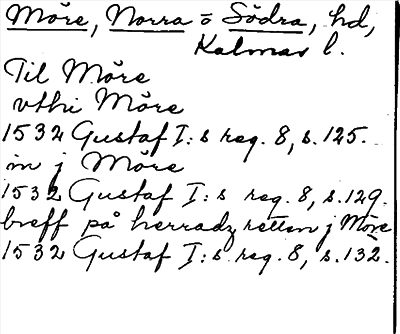 Möre, Norra o Södra, hd,
Kalmar l.
Til Möre
vthi Möre
1532 Gustaf I:s reg. 8, s. 125.
in j Möre
1532 Gustaf I:s reg. 8, s. 129.
breff på herradz retten j Möre
1532 Gustaf I:s reg. 8, s. 132.